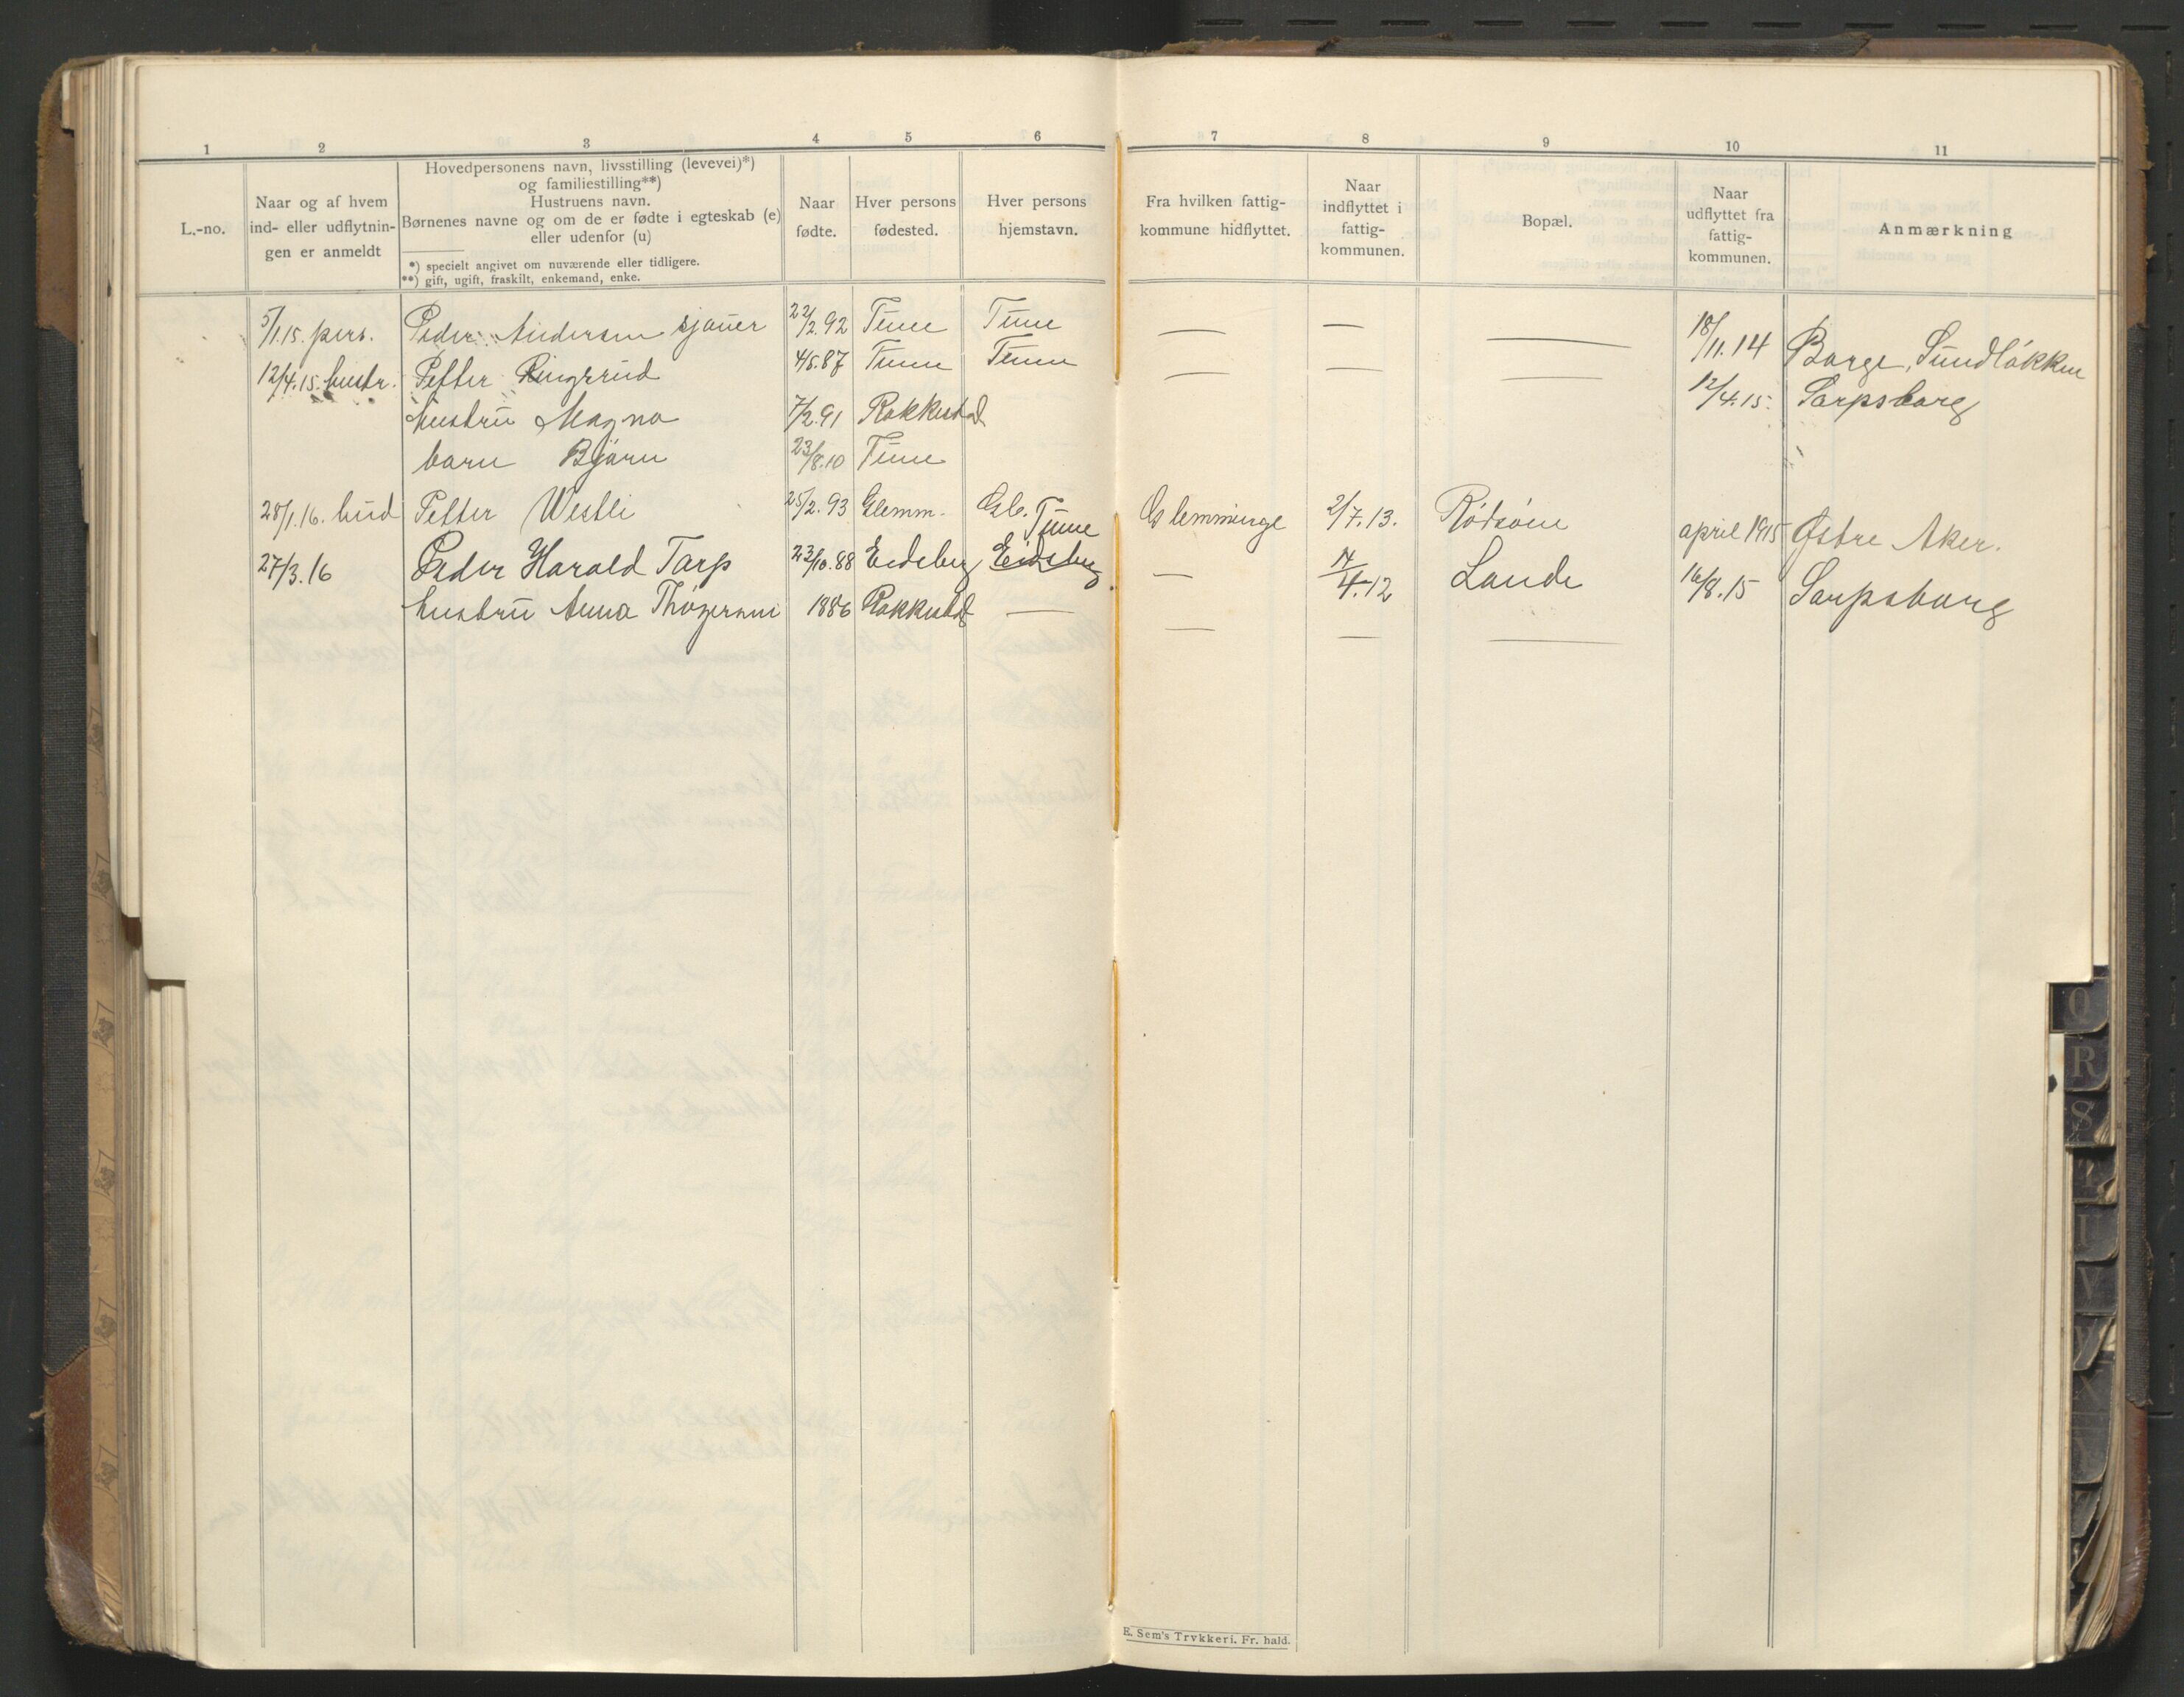 1 2 3 4 5 6 7 8 9 10 11
L.-no.
Naar og af hvem
ind- eller udflytnin-
gen er anmeldt
Hovedpersonens navn, livsstilling (levevei)*)
og familiestilling**)
Hustruens navn.
Børnenes navne og om de er fødte i egteskab (e)
eller udenfor (u)
*) specielt angivet om nuværende eller tidligere.
**) gift, ugift, fraskilt, enkemand, enke.
Naar
fødte.
Hver persons
fødested.
Hver persons
hjemstavn.
Fra hvilken fattig-
kommune hidflyttet.
Naar
indflyttet i
fattig-
kommunen.
Bopæl.
Naar
udflyttet fra
fattig-
kommunen.
Anmærkning
5/1.15. pers. Peder Andersen sjauer 22/2.92 Tune Tune — — — 18/11.14 Borge, Sundløkken
12/4.15. hustr. Petter Ringerud 4/5.87 Tune Tune — — — 12/4.15. Sarpsborg
hustru Magna 7/2.91 Rakkestad
barn Bjarn 23/8.10 Tune
28/1.16. bud Petter Westli 25/2.93 Glemm. Gle. Tune Glemminge 2/7.13. Rødsøen april 1915 Østre Aker.
27/3.16 Peder Harald Tarp 23/10.88 Eidsberg Eidsberg — 14/4.12 Lande 16/8.15 Sarpsborg
hustru Anna Thøgersen 1886 Rakkestad — — — —
E. Sem's Trykkeri. Fr. hald.
Q
R
S
U
V
X